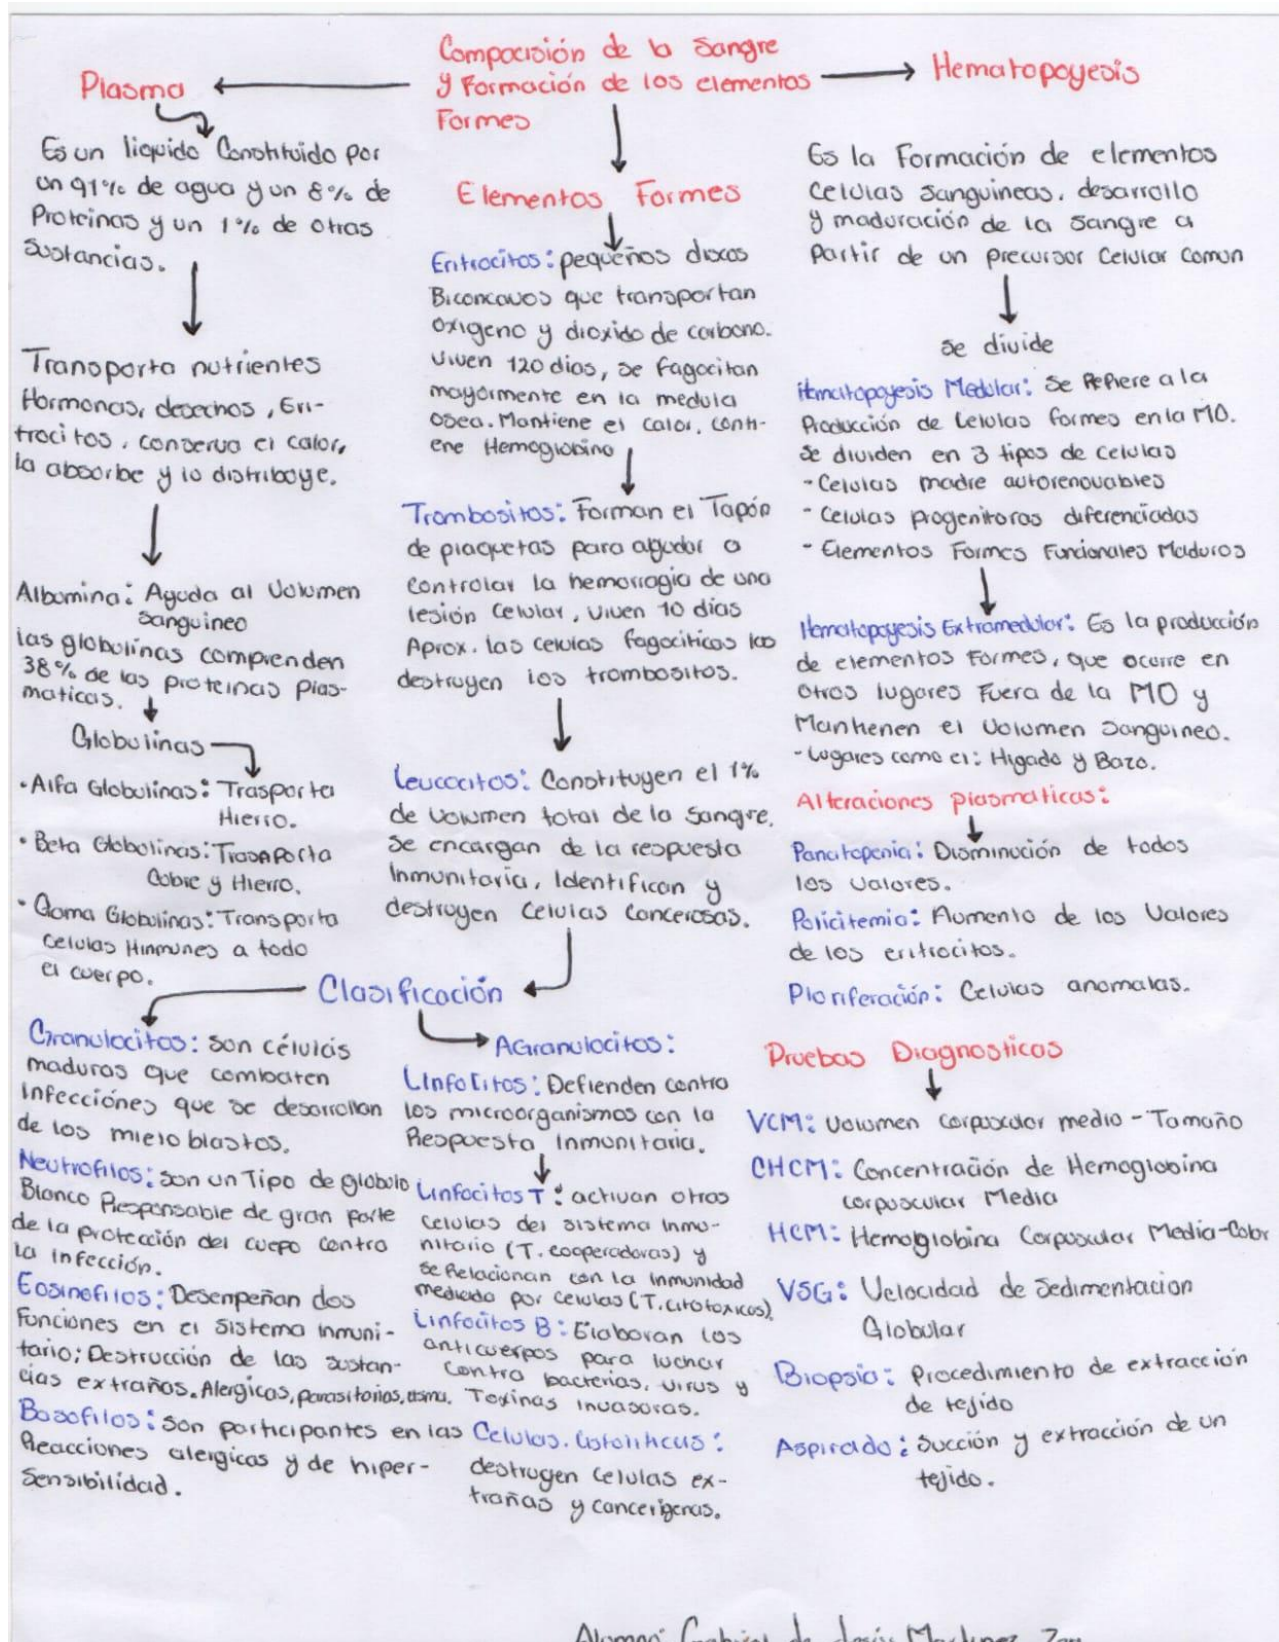 Compocisión de la Sangre
y Formación de los elementos
Formes
Plasma
Es un liquido Constituido por
un 91% de agua y un 8% de
Proteinas y un 1% de otras
Sustancias.
Transporta nutrientes
Hormonas, desechos, Eri-
trocitos, conserva el calor,
la absorbe y lo distribuye.
Albumina: Ayuda al Volumen
Sanguineo
las globulinas comprenden
38% de las proteinas Plas-
maticas.
Globulinas
• Alfa Globulinas: Trasporta
Hierro.
• Beta Globulinas: Trasporta
Cobre y Hierro.
• Gama Globulinas: Transporta
Celulas Hinmunes a todo
el cuerpo.
Elementos Formes
Eritrocitos: pequeños discos
Biconcavos que transportan
oxigeno y dioxido de carbono.
Viven 120 dias, se fagocitan
mayormente en la medula
osea. Mantiene el calor, conti-
ene Hemoglobina
Trombositos: Forman el Tapón
de plaquetas para ayudar a
Controlar la hemorragia de una
lesión Celular, Viven 10 días
Aprox. las celulas fagociticas las
destruyen los trombositos.
Leucocitos: Constituyen el 1%
de Volumen total de la Sangre.
Se encargan de la respuesta
Inmunitaria, Identifican y
destruyen Celulas Cancerosas.
Clasificación
Granulocitos: Son células
maduras que combaten
Infecciónes que se desarrollan
de los mielo blastos.
Neutrofilos: Son un Tipo de globulo
Blanco Responsable de gran parte
de la protección del cuepo contra
la Infección.
Eosinofilos: Desenpeñan dos
Funciones en el Sistema inmuni-
tario; Destrucción de las sustan-
cias extrañas. Alergicas, parasitarias, asma.
Basofilos: Son participantes en las
Reacciones alergicas y de hiper-
Sensibilidad.
AGranulocitos:
Linfocitos: Defienden contra
los microorganismos con la
Respuesta Inmunitaria.
Linfocitos T: activan otras
Celulas del sistema Inmu-
nitario (T. cooperadoras) y
se Relacionan con la Inmunidad
mediada por celulas (T. citotoxicos)
Linfocitos B: Elaboran los
anticuerpos para luchar
Contra bacterias, virus y
Toxinas invasoras.
Celulas.
destruyen celulas ex-
trañas y cancerigenas.
Hematopoyesis
Es la Formación de elementos
Celulas Sanguineas, desarrollo
y maduración de la Sangre a
Partir de un precursor Celular Comun
se divide
Hematopoyesis Medular: Se Refiere a la
Producción de Celulas formes en la MO.
Se dividen en 3 tipos de celulas
- Celulas madre autorenovables
- Celulas progenitoras diferenciadas
- Elementos Formes Funcionales Maduros
Hematopoyesis Extramedular: Es la producción
de elementos Formes, que ocurre en
otros lugares Fuera de la MO y
Mantienen el Volumen Sanguineo.
- Lugares como el: Higado y Bazo.
Alteraciones plasmaticas:
Pancitopenia: Disminución de todos
los valores.
Policitemia: Aumento de los Valores
de los eritrocitos.
Ploriferación: Celulas anomalas.
Pruebas Diagnosticas
VCM: Volumen Corpuscular medio - Tamaño
CHCM: Concentración de Hemoglobina
Corpuscular Media
HCM: Hemoglobina Corpuscular Media-Color
VSG: Velocidad de Sedimentacion
Globular
Biopsia: Procedimiento de extracción
de tejido
Aspirado: Succión y extracción de un
tejido.
Gabriel de Jesús Martinez